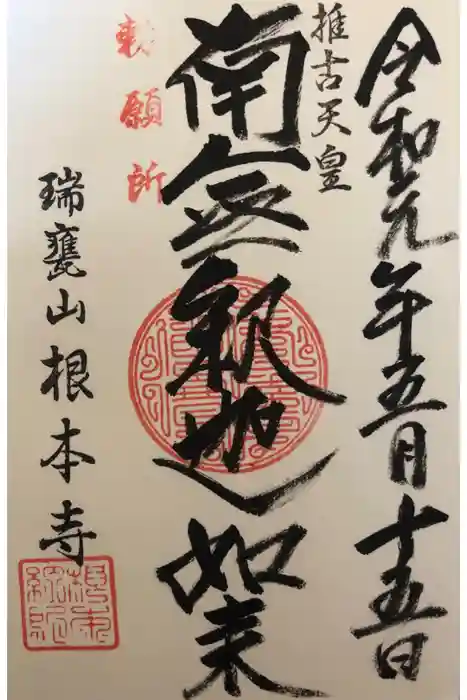 令和元年五月十五日
推古天皇
南無釈迦如来
勅願所
瑞甕山根本寺